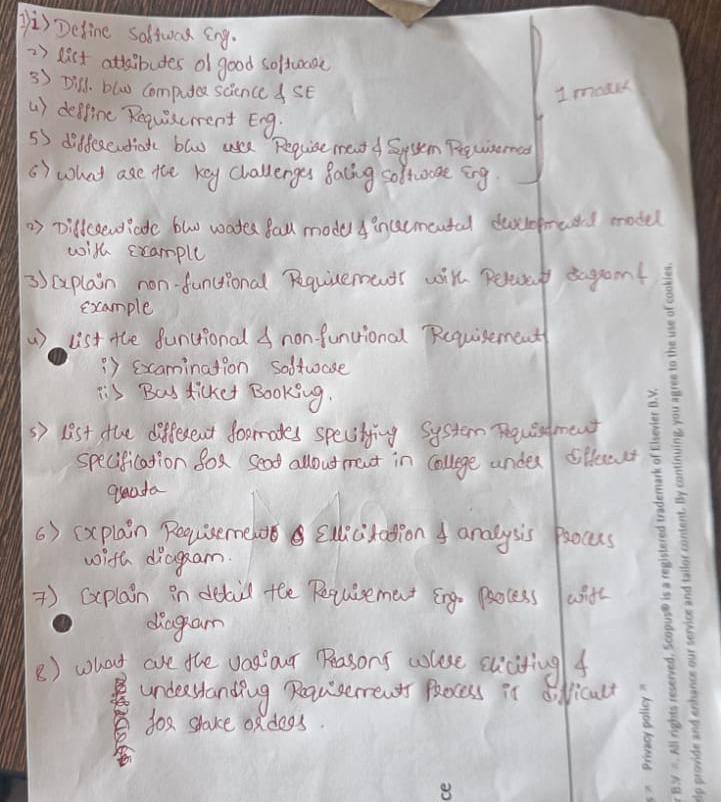 1) i) Define Softwar Eng.
2) list attributes of good software
3) Diff. b/w Computer science & SE
4) deffine Requirement Eng.
5) differentiate b/w user Requirement & System Requirement
6) what are the key challenges facing software Eng.
1 mark
2) Differentiate b/w water fall model & incremental developmental model
with Example
3) Explain non-functional Requirements with Relevant diagram &
Example
4) List the functional & non-functional Requirement
i) Examination Software
ii) Bus ticket Booking.
5) List the different formates specifying System Requirement
specification for seat alloutment in College under different
quata
6) Explain Requirements Ellicitation & analysis Process
with diagram.
7) Explain in detail the Requirement Eng. Process with
diagram
8) what are the various Reasons where eliciting &
understanding Requirements Process is difficult
for stake orders.
Privacy policy
B.V. All rights reserved. Scopus® is a registered trademark of Elsevier B.V.
lp provide and enhance our service and tailor content. By continuing, you agree to the use of cookies.
ce